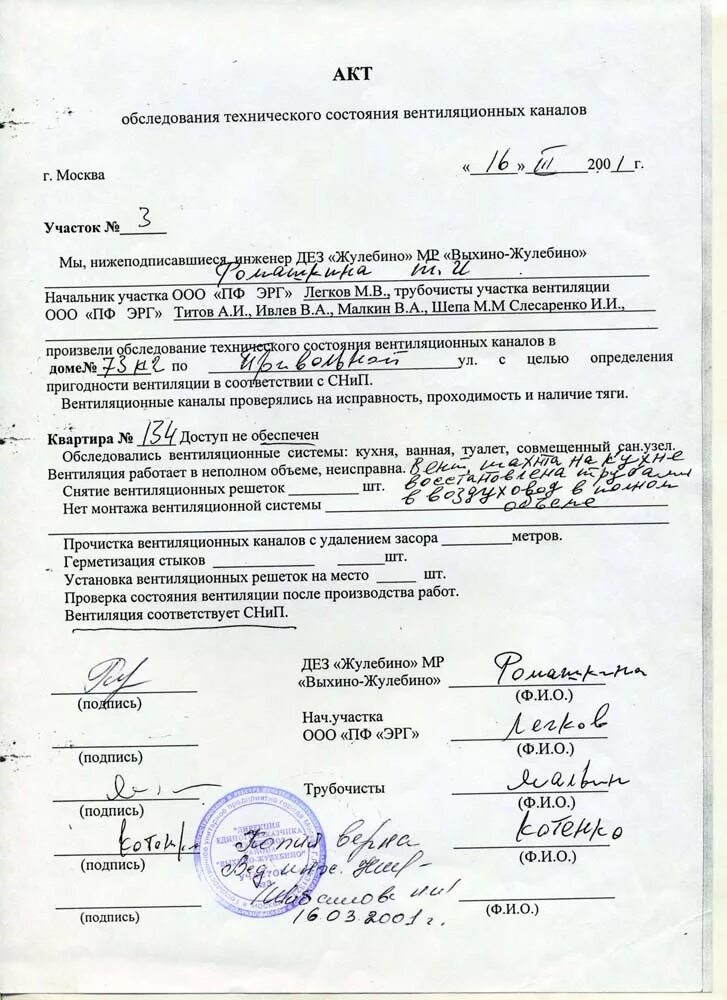 АКТ
обследования технического состояния вентиляционных каналов
« 16 » III 2001 г.
г. Москва
Участок № 3
Мы, нижеподписавшиеся, инженер ДЕЗ «Жулебино» МР «Выхино-Жулебино»
Ромашкина Т. И
Начальник участка ООО «ПФ ЭРГ» Легков М.В., трубочисты участка вентиляции
ООО «ПФ ЭРГ» Титов А.И., Ивлев В.А., Малкин В.А., Шепа М.М Слесаренко И.И.,
произвели обследование технического состояния вентиляционных каналов в
доме№ 73 к2 по Привольной ул. с целью определения
пригодности вентиляции в соответствии с СНиП.
Вентиляционные каналы проверялись на исправность, проходимость и наличие тяги.
Квартира № 134 Доступ не обеспечен
Обследовались вентиляционные системы: кухня, ванная, туалет, совмещенный сан.узел.
Вентиляция работает в неполном объеме, неисправна. Вент. шахта на кухне
восстановлена трубами
Снятие вентиляционных решеток шт.
в воздуховод в полном
Нет монтажа вентиляционной системы
объеме
Прочистка вентиляционных каналов с удалением засора метров.
Герметизация стыков шт.
Установка вентиляционных решеток на место шт.
Проверка состояния вентиляции после производства работ.
Вентиляция соответствует СНиП.
ДЕЗ «Жулебино» МР
«Выхино-Жулебино» Ромашкина
(подпись) (Ф.И.О.)
Нач.участка
ООО «ПФ «ЭРГ» Легков
(подпись) (Ф.И.О.)
Трубочисты Малкин
(подпись) (Ф.И.О.)
Котенко
(подпись) (Ф.И.О.)
"ДИРЕКЦИЯ
ЕДИНОГО ЗАКАЗЧИКА
РАЙОНА
"ВЫХИНО-ЖУЛЕБИНО"
Копия верна
Вед. инж.
16.03.2001 г.
(подпись) (Ф.И.О.)